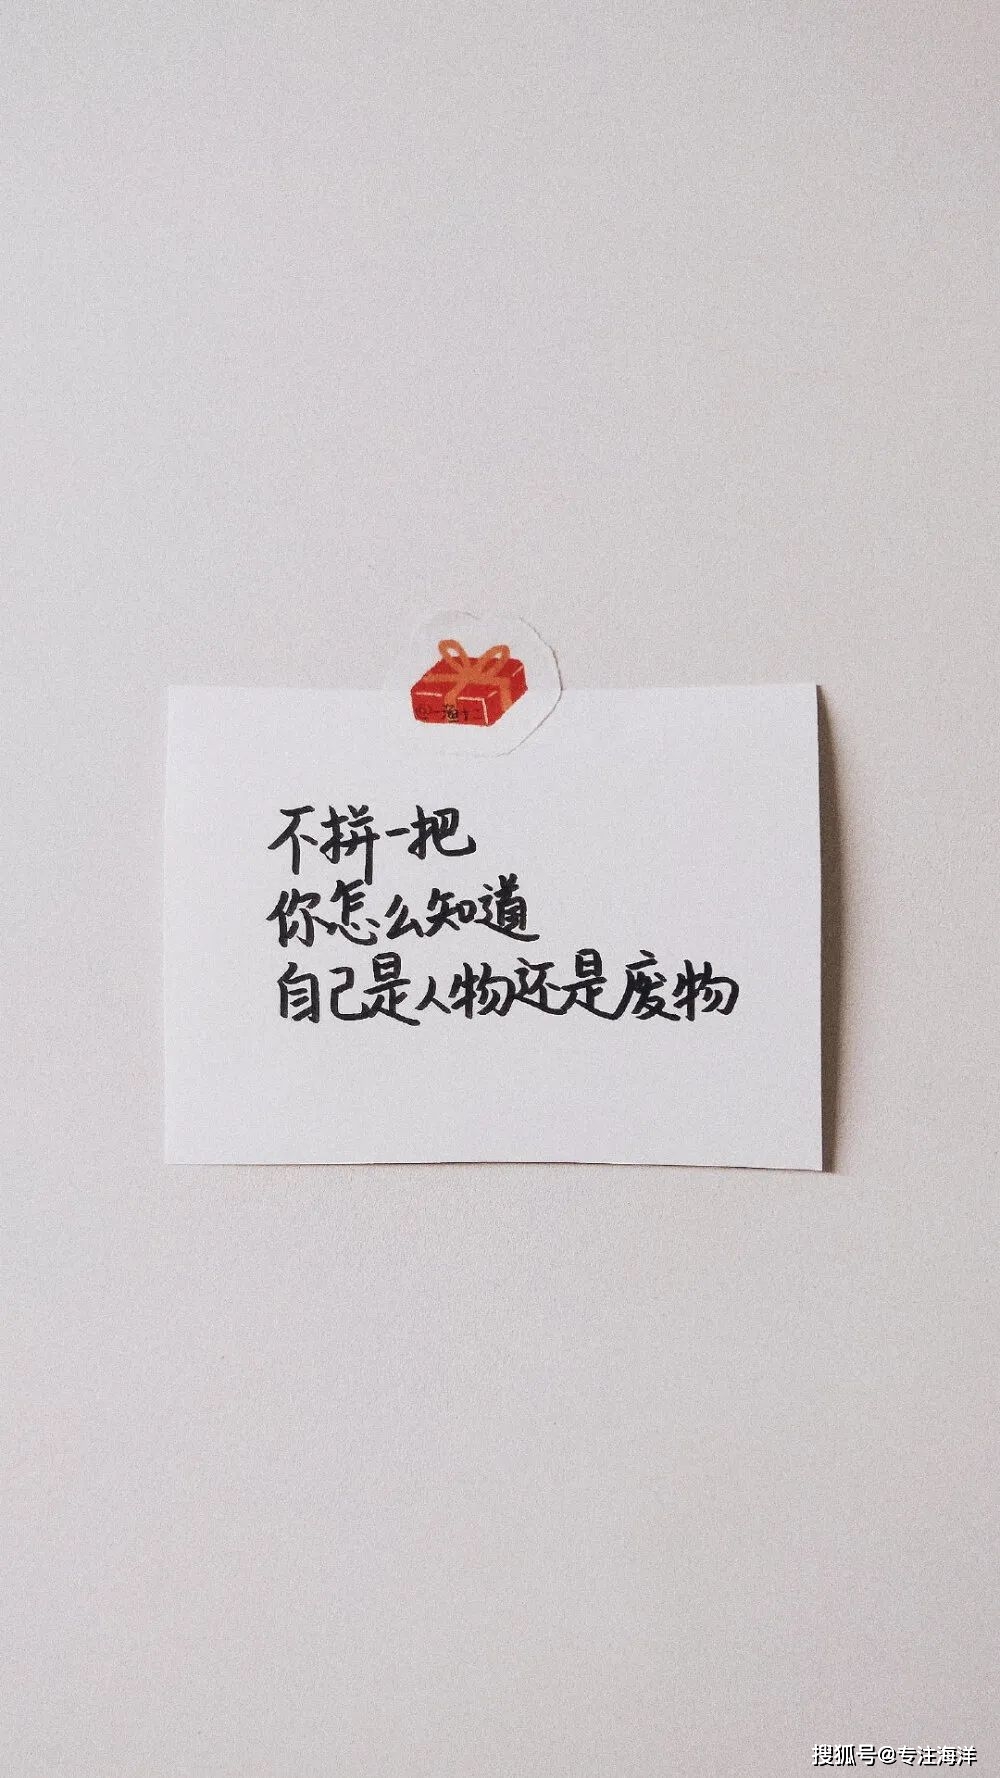 不拼一把
你怎么知道
自己是人物还是废物
搜狐号@专注海洋